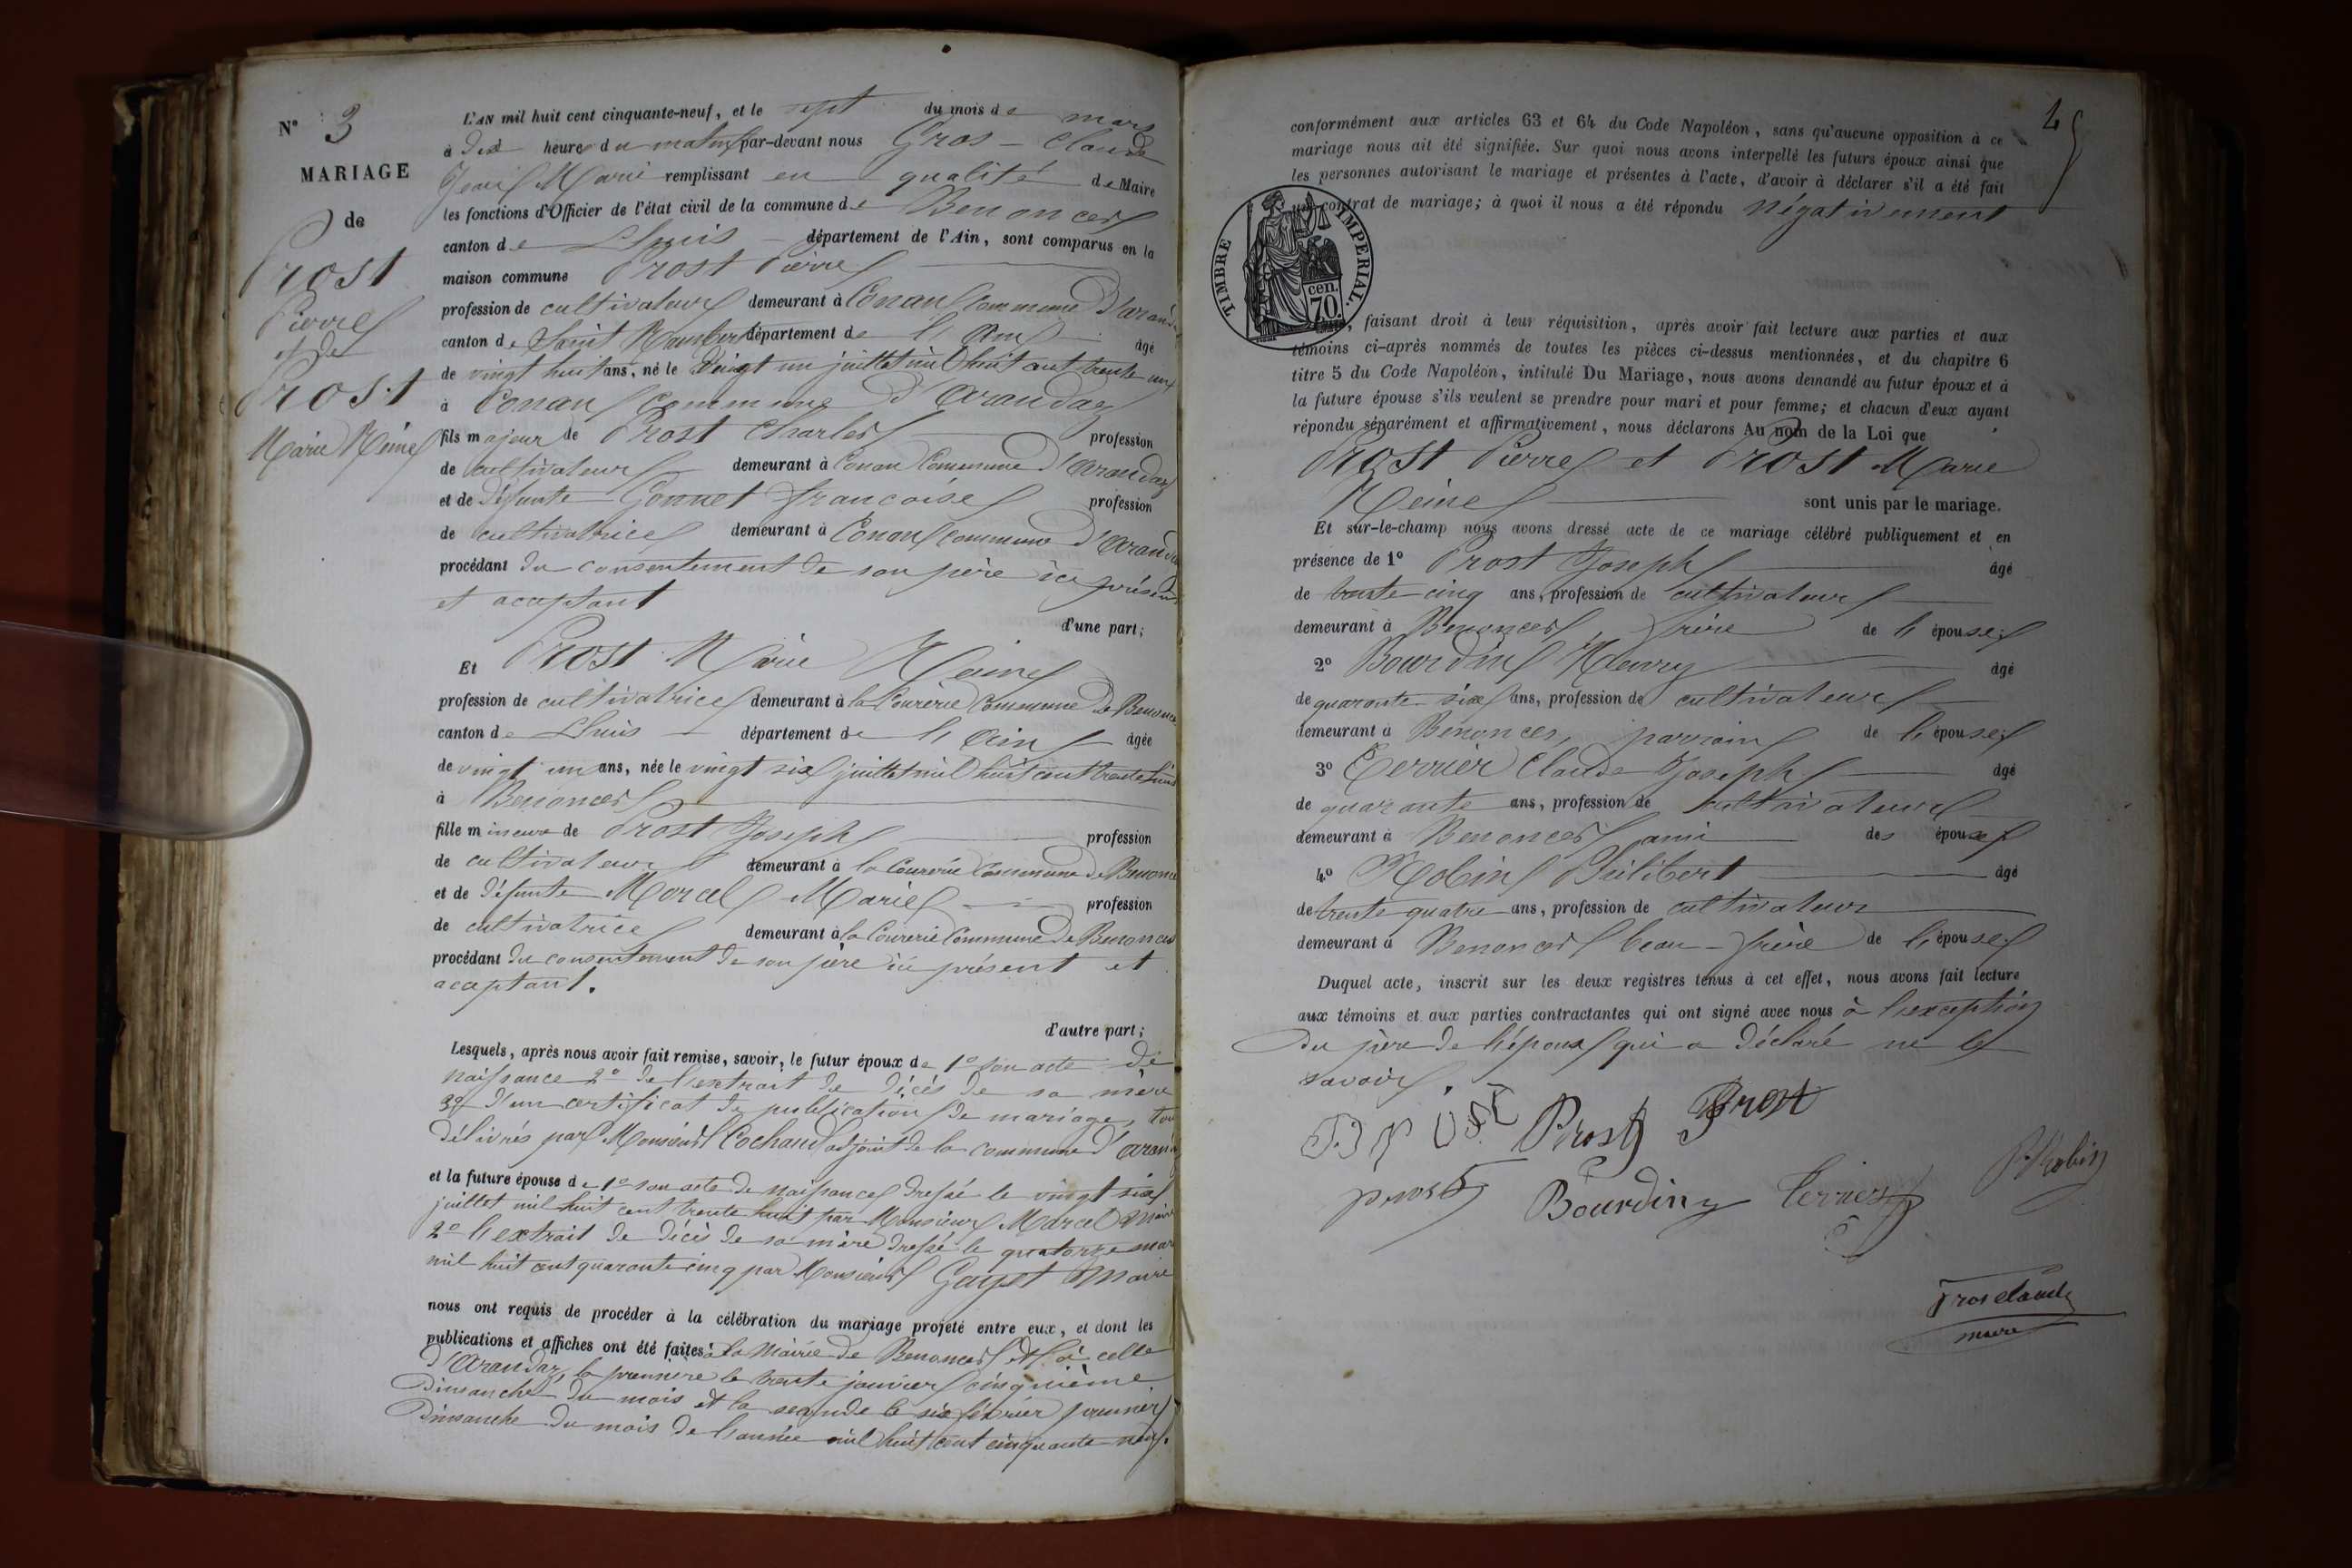 N° 3
MARIAGE
de
Prost
Pierre
et de
Prost
Marie Reine
L'AN mil huit cent cinquante-neuf, et le sept du mois de mars
à dix heures du matin par-devant nous Gros Claude
Marie remplissant en qualité de Maire
les fonctions d'Officier de l'état civil de la commune de Benonces
canton de Lhuis département de l'Ain, sont comparus en la
maison commune Prost Pierre
profession de cultivateur demeurant à Conan Commune d'arandaz
canton de Saint Rambert département de l'Ain âgé
de vingt huit ans, né le vingt un juillet mil huit cent trente un
à Conan Commune d'Arandaz
fils majeur de Prost Charles profession
de cultivateur demeurant à Conan Commune d'Arandaz
et de défunte Gonnet françoise profession
de cultivatrice demeurant à Conan commune d'Arandaz
procédant du consentement de son père ici présent
et acceptant
d'une part;
Et Prost Marie Reine
profession de cultivatrice demeurant à la Courerie Commune de Benonces
canton de Lhuis département de l'Ain âgée
de vingt un ans, née le vingt six juillet mil huit cent trente huit
à Benonces
fille mineure de Prost Joseph profession
de cultivateur demeurant à la Courerie Commune de Benonces
et de défunte Marcel Marie profession
de cultivatrice demeurant à la Courerie Commune de Benonces
procédant du consentement de son père ici présent et
acceptant.
d'autre part;
Lesquels, après nous avoir fait remise, savoir, le futur époux de 1° son acte de
naissance 2° de l'extrait de décès de sa mère
3° d'un certificat de publication de mariage, tous
délivrés par Monsieur Cochaud adjoint de la commune d'Arandaz
et la future épouse de 1° son acte de naissance dressé le vingt six
juillet mil huit cent trente huit par Monsieur Marcel Maire
2° l'extrait de décès de sa mère dressé le quatorze mars
mil huit cent quarante cinq par Monsieur Gayet Maire
nous ont requis de procéder à la célébration du mariage projeté entre eux, et dont les
publications et affiches ont été faites à la Mairie de Benonces et à celle
d'Arandaz, la première le trente janvier cinquième
Dimanche du mois et la seconde le six février premier
Dimanche du mois de l'année mil huit cent cinquante neuf.
45
conformément aux articles 63 et 64 du Code Napoléon, sans qu'aucune opposition à ce
mariage nous ait été signifiée. Sur quoi nous avons interpellé les futurs époux ainsi que
les personnes autorisant le mariage et présentes à l'acte, d'avoir à déclarer s'il a été fait
un contrat de mariage; à quoi il nous a été répondu négativement
TIMBRE IMPERIAL.
cen.
70.
, faisant droit à leur réquisition, après avoir fait lecture aux parties et aux
témoins ci-après nommés de toutes les pièces ci-dessus mentionnées, et du chapitre 6
titre 5 du Code Napoléon, intitulé Du Mariage, nous avons demandé au futur époux et à
la future épouse s'ils veulent se prendre pour mari et pour femme; et chacun d'eux ayant
répondu séparément et affirmativement, nous déclarons Au nom de la Loi que
Prost Pierre et Prost Marie
Reine sont unis par le mariage.
Et sur-le-champ nous avons dressé acte de ce mariage célébré publiquement et en
présence de 1° Prost Joseph âgé
de trente cinq ans, profession de cultivateur
demeurant à Benonces, frère de l'épouse;
2° Bourdin Henry âgé
de quarante six ans, profession de cultivateur
demeurant à Benonces, parrain de l'épouse;
3° Terrier Claude Joseph âgé
de quarante ans, profession de cultivateur
demeurant à Benonces ami des époux
4° Robin Philibert âgé
de trente quatre ans, profession de cultivateur
demeurant à Benonces beau-frère de l'épouse
Duquel acte, inscrit sur les deux registres tenus à cet effet, nous avons fait lecture
aux témoins et aux parties contractantes qui ont signé avec nous à l'exception
du père de l'époux qui a déclaré ne le
savoir.
Prost Prost Prost
prost Bourdin Terrier P. Robin
Gros Claude
maire